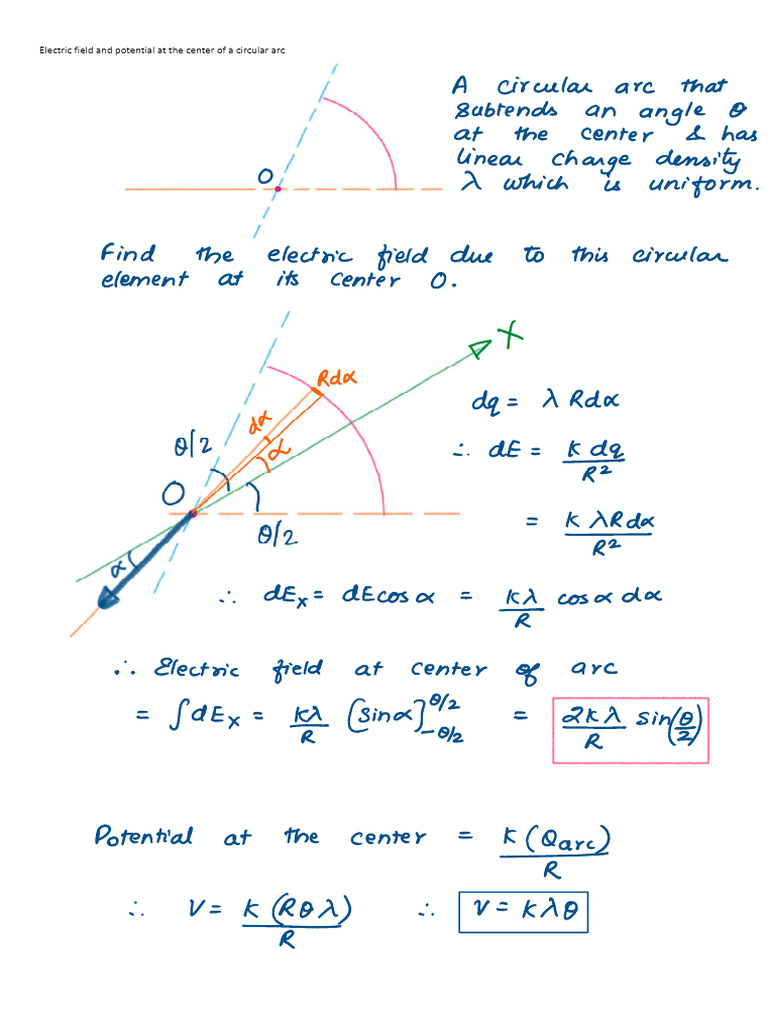 Electric field and potential at the center of a circular arc
A circular arc that
subtends an angle θ
at the center & has
linear charge density
λ which is uniform.
O
Find the electric field due to this circular
element at its center O.
X
Rdα
dα
α
θ/2
O
θ/2
α
dq = λ Rdα
∴ dE = K dq / R²
= K λRdα / R²
∴ dEx = dE cos α = Kλ/R cos α dα
∴ Electric field at center of arc
= ∫dEx = Kλ/R [Sinα]^θ/2 _-θ/2 = 2Kλ/R sin(θ/2)
Potential at the center = K(Qarc) / R
∴ V = K(Rθλ) / R ∴ V = Kλθ